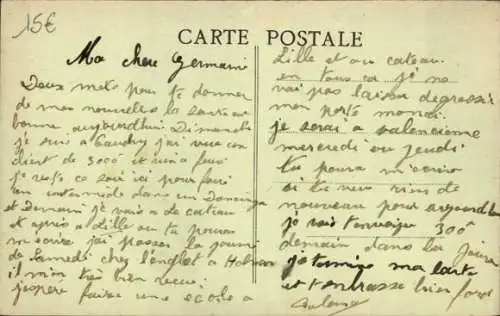 15€
CARTE POSTALE
Ma chere Germaine
Deux mots pour te donner
de mes nouvelles la santé est
bonne aujourdhui Dimanche
je suis a Caudry j'ai vue un
client de 300ᶠ et
je reste ce soir ici pour faire
un intermide dans un Dancing
et Demain je vais a de cateau
et après a Lille ou tu pourras
m'ecrire j'ai passer la journé
de Samedi chez
il m'on très bien recue
j'espère faire une ecole a
Lille et au cateau
en tous ca je ne
vai pas laisser degrossir
mon porte monai
je serai a valencienne
mercredi ou jeudi
tu poura m'ecrire
si tu rien de
nouveau pour aujourdhui
je vais t'envoyer 300ᶠ
demain dans la journé
je termine ma carte
et t'embrasse bien fort